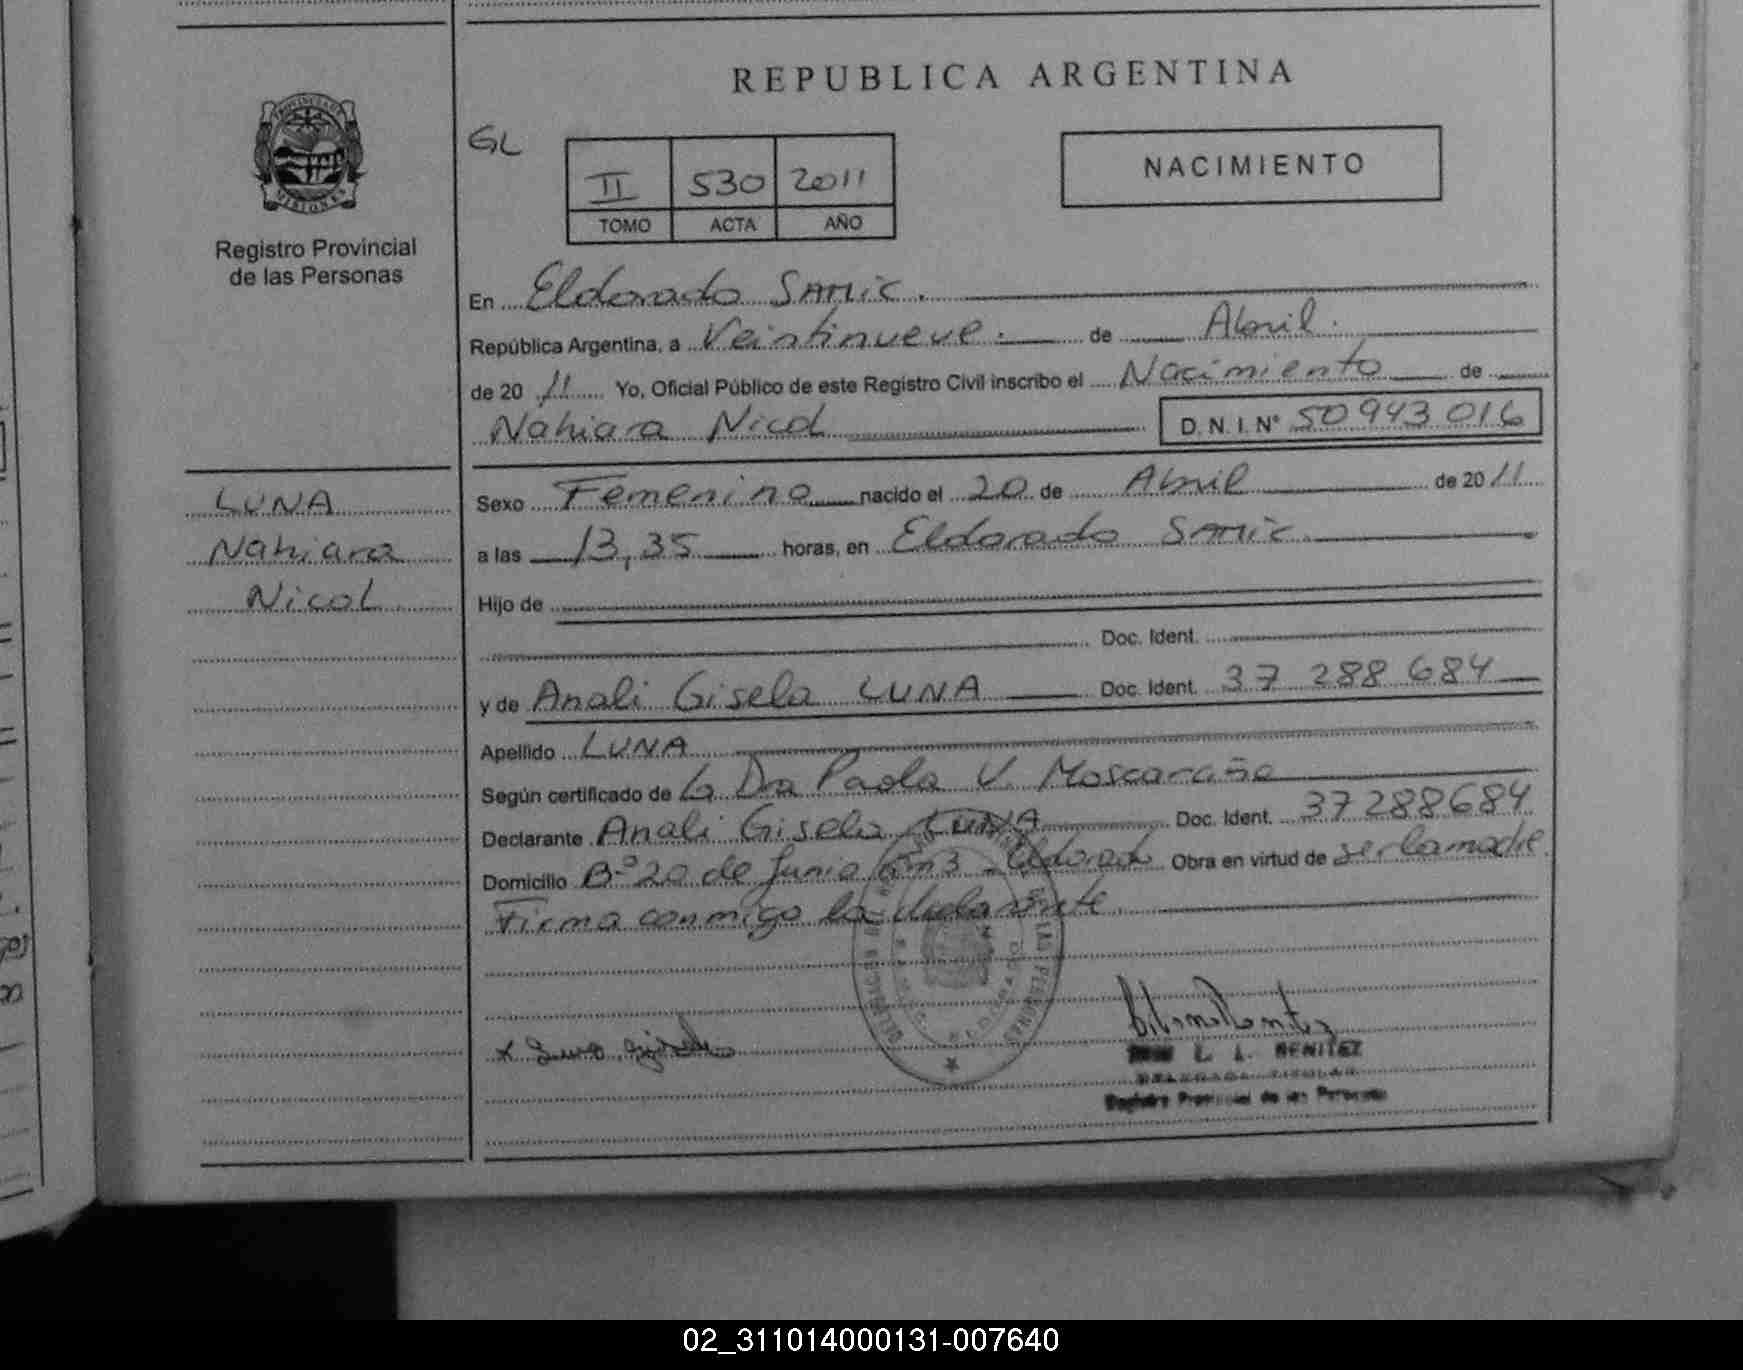 REPUBLICA ARGENTINA
PROVINCIA DE
MISIONES
Registro Provincial
de las Personas
GL
II 530 2011
TOMO ACTA AÑO
NACIMIENTO
En Eldorado SAMIC.
República Argentina, a Veintinueve. de Abril.
de 20 11 Yo, Oficial Público de este Registro Civil inscribo el Nacimiento de
Nahiara Nicol D. N. I. N° 50 943 016
LUNA
Nahiara
Nicol
Sexo Femenino nacido el 20 de Abril de 20 11
a las 13,35 horas, en Eldorado SAMIC.
Hijo de
Doc. Ident.
y de Anali Gisela LUNA Doc. Ident. 37 288 684
Apellido LUNA
Según certificado de La Dra Paola V.
Declarante Anali Gisela LUNA Doc. Ident. 37288684
Domicilio B° 20 de Junio km3 - Eldorado Obra en virtud de ser la madre
Firma conmigo la declarante.
DE LAS PERSONAS
L. L. BENITEZ
DELEGADA TITULAR
Registro Provincial de las Personas
02_311014000131-007640